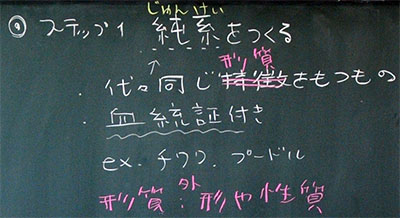 じゅんけい
⑨ ステップ1 純系をつくる
形質
・代々同じ特徴をもつもの
・血統証付き
ex. チワワ. プードル
形質:外形や性質